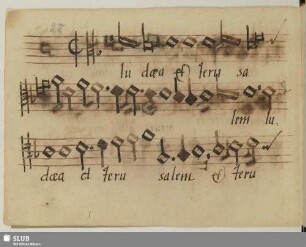 lu dæa et Jeru sa
lem lu
dæa et Jeru salem et Jeru
SLUB